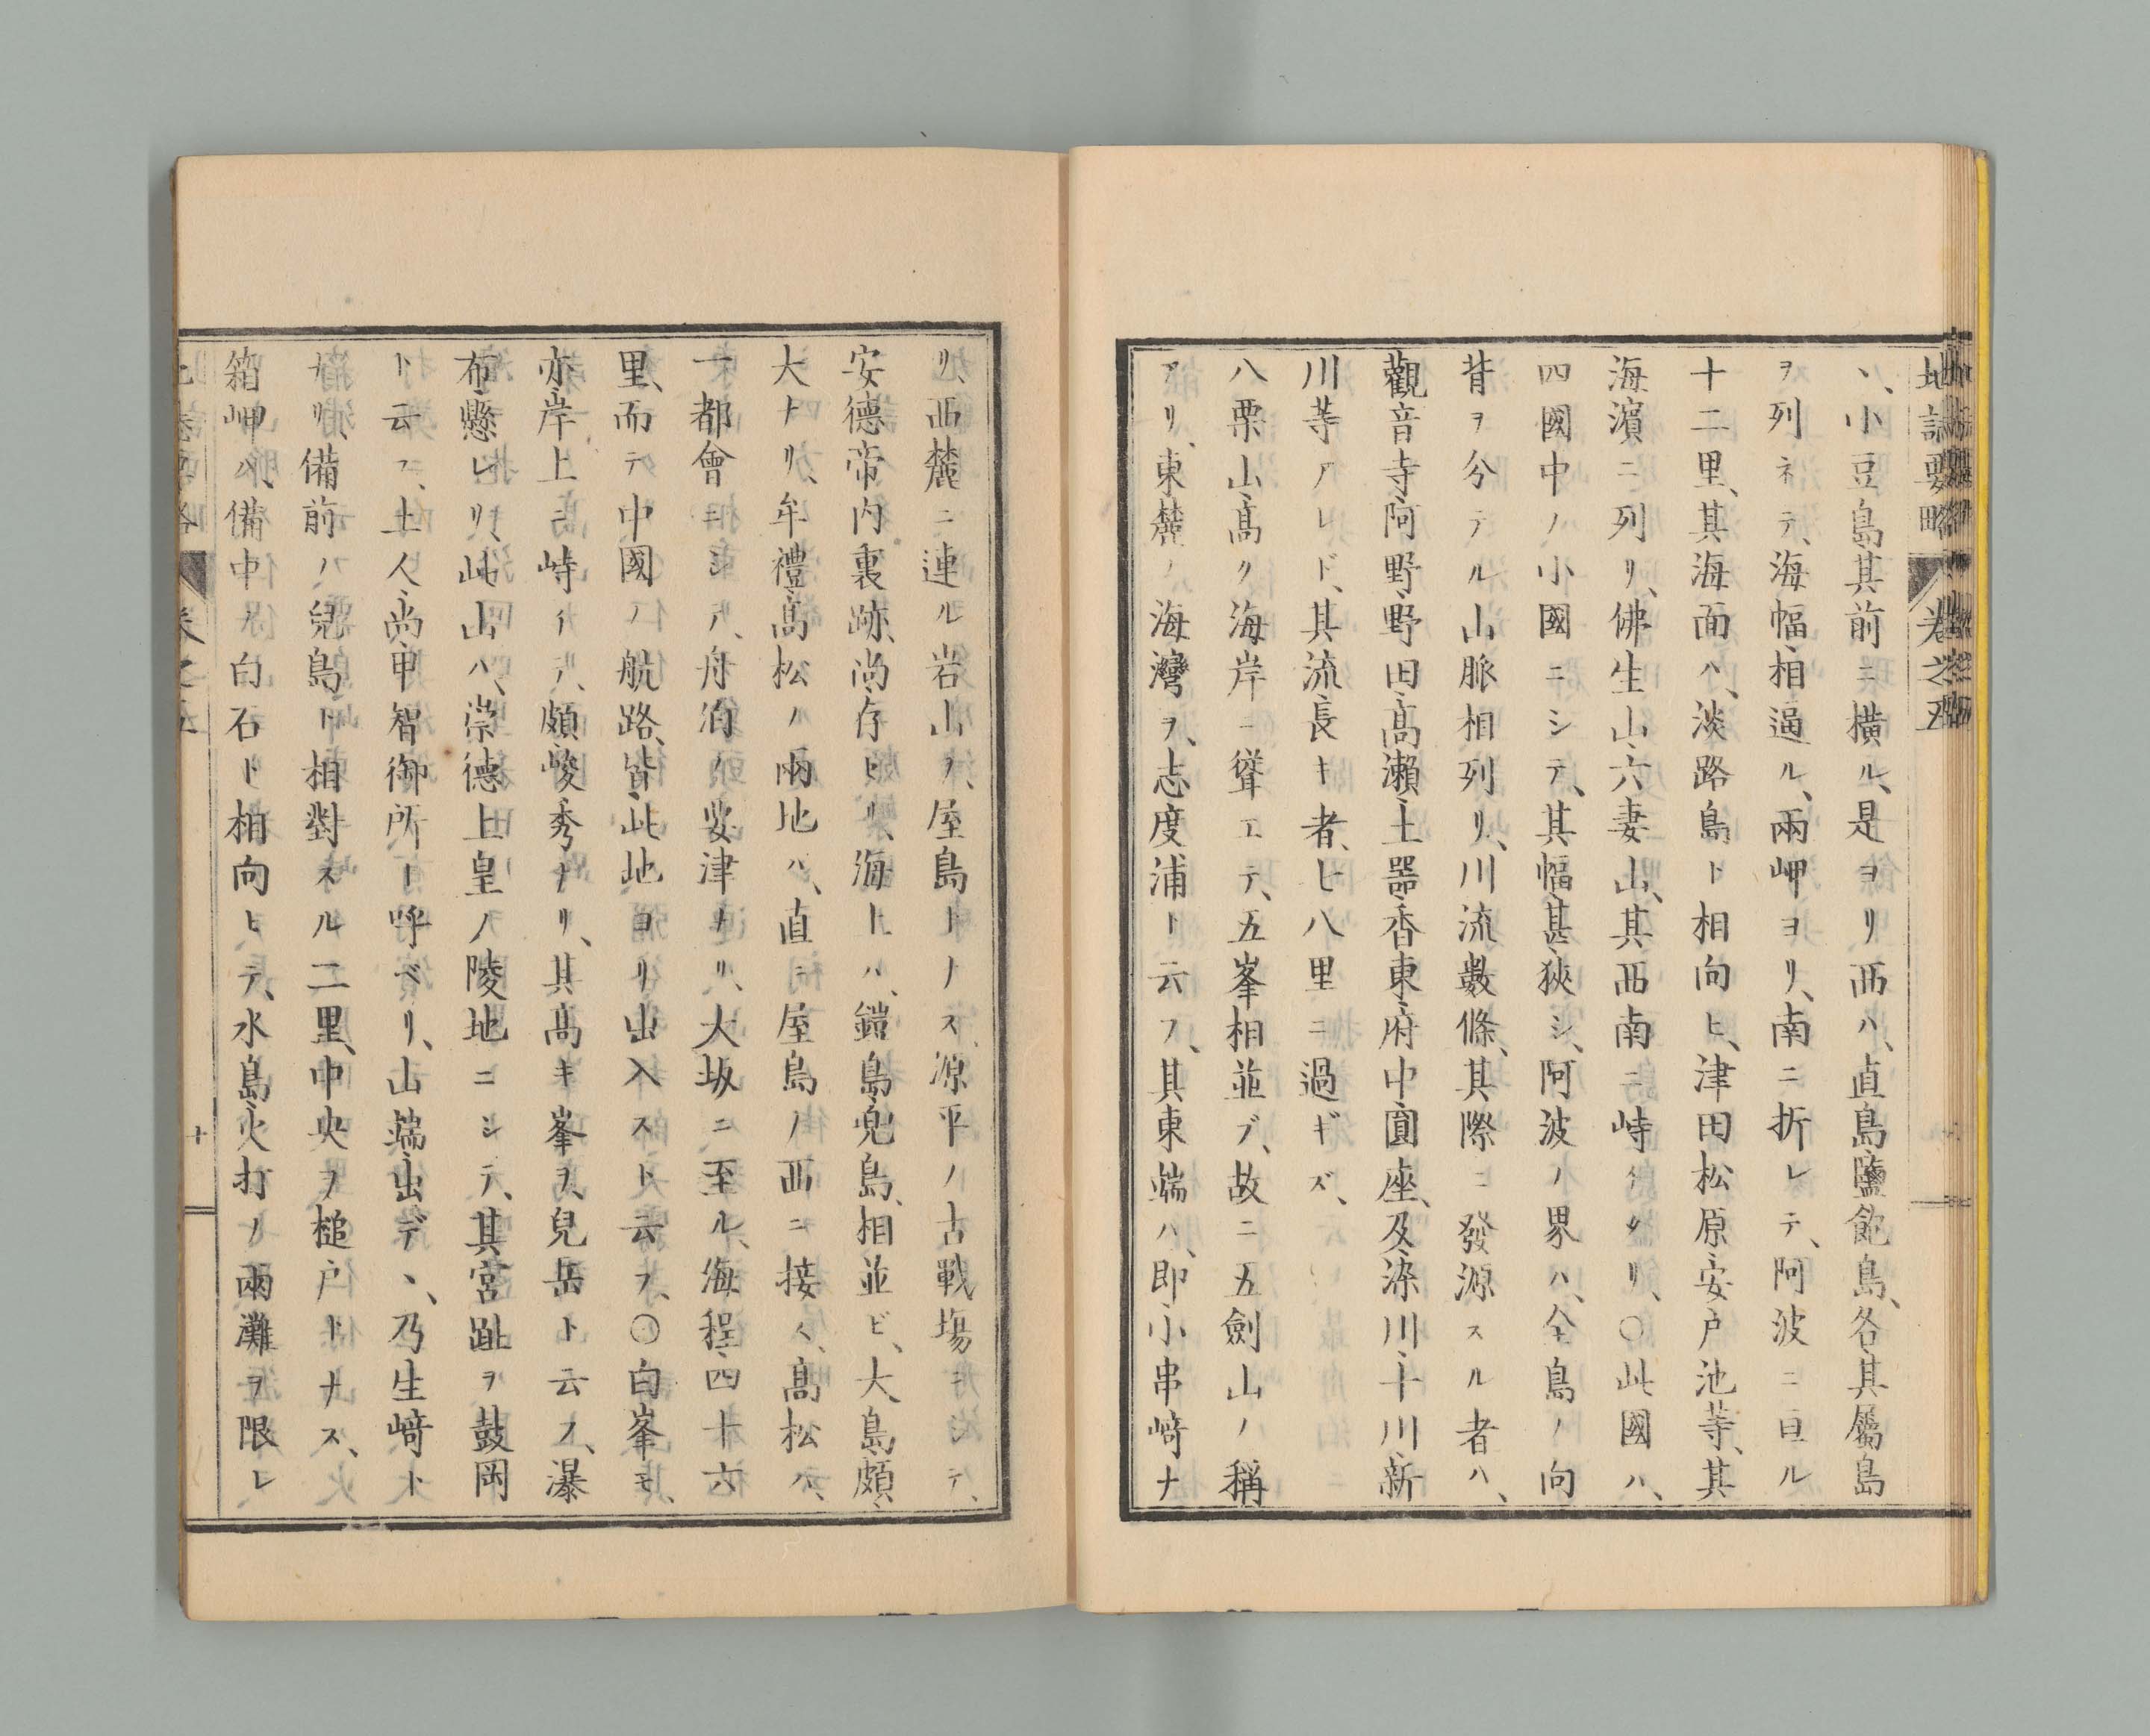 地誌要略 卷之五
ヽ、小豆島其前ニ橫ル、是ヨリ西ハ、直島鹽飽島、各其屬島
ヲ列ネテ、海幅相逼ル、兩岬ヨリ、南ニ折レテ、阿波ニ亘ル
十二里、其海面ハ、淡路島ト相向ヒ、津田松原安戸池等、其
海濱ニ列リ、佛生山六妻山、其西南ニ峙タリ、〇此國ハ、
四國中ノ小國ニシテ、其幅甚狹シ、阿波ノ界ハ、全島ノ向
背ヲ分テル山脈相列リ、川流數條、其際ニ發源スル者ハ、
觀音寺阿野野田高瀨土器香東府中圓座、及湊川十川新
川等アレド、其流長キ者、七八里ニ過ギズ、
八栗山高ク海岸ニ聳エテ、五峯相並ブ、故ニ五劍山ノ稱
アリ、東麓ノ海灣ヲ、志度浦ト云フ、其東端ハ、即小串﨑ナ
リ、西麓ニ連ル岩山ヲ、屋島トナス、源平ノ古戰塲ニシテ、
安德帝内裏跡、尚存セリ、海上ハ、鎧島兜島、相並ビ、大島頗
大ナリ、牟禮高松ノ兩地ハ、直ニ屋島ノ西ニ接ス、高松ハ、
一都會ニシテ、舟泊ノ要津ナリ、大坂ニ至ル、海程四十六
里、而テ中國ノ航路、皆此地ヨリ出入スト云フ、〇白峯モ、
亦岸上ニ峙チテ、頗峻秀ナリ、其高キ峯ヲ、兒岳ト云フ、瀑
布懸レリ、此山ハ、崇德上皇ノ陵地ニシテ、其宮趾ヲ鼓岡
ト云フ、土人尚申智御所ト呼ベリ、山端出デヽ、乃生﨑ト
ナリ、備前ノ兒島ト相對スル二里、中央ヲ槌戸トナス、
箱岬ハ、備中ノ白石ト相向ヒテ、水島火打ノ兩灘ヲ限レ
地誌要略 卷之五 十